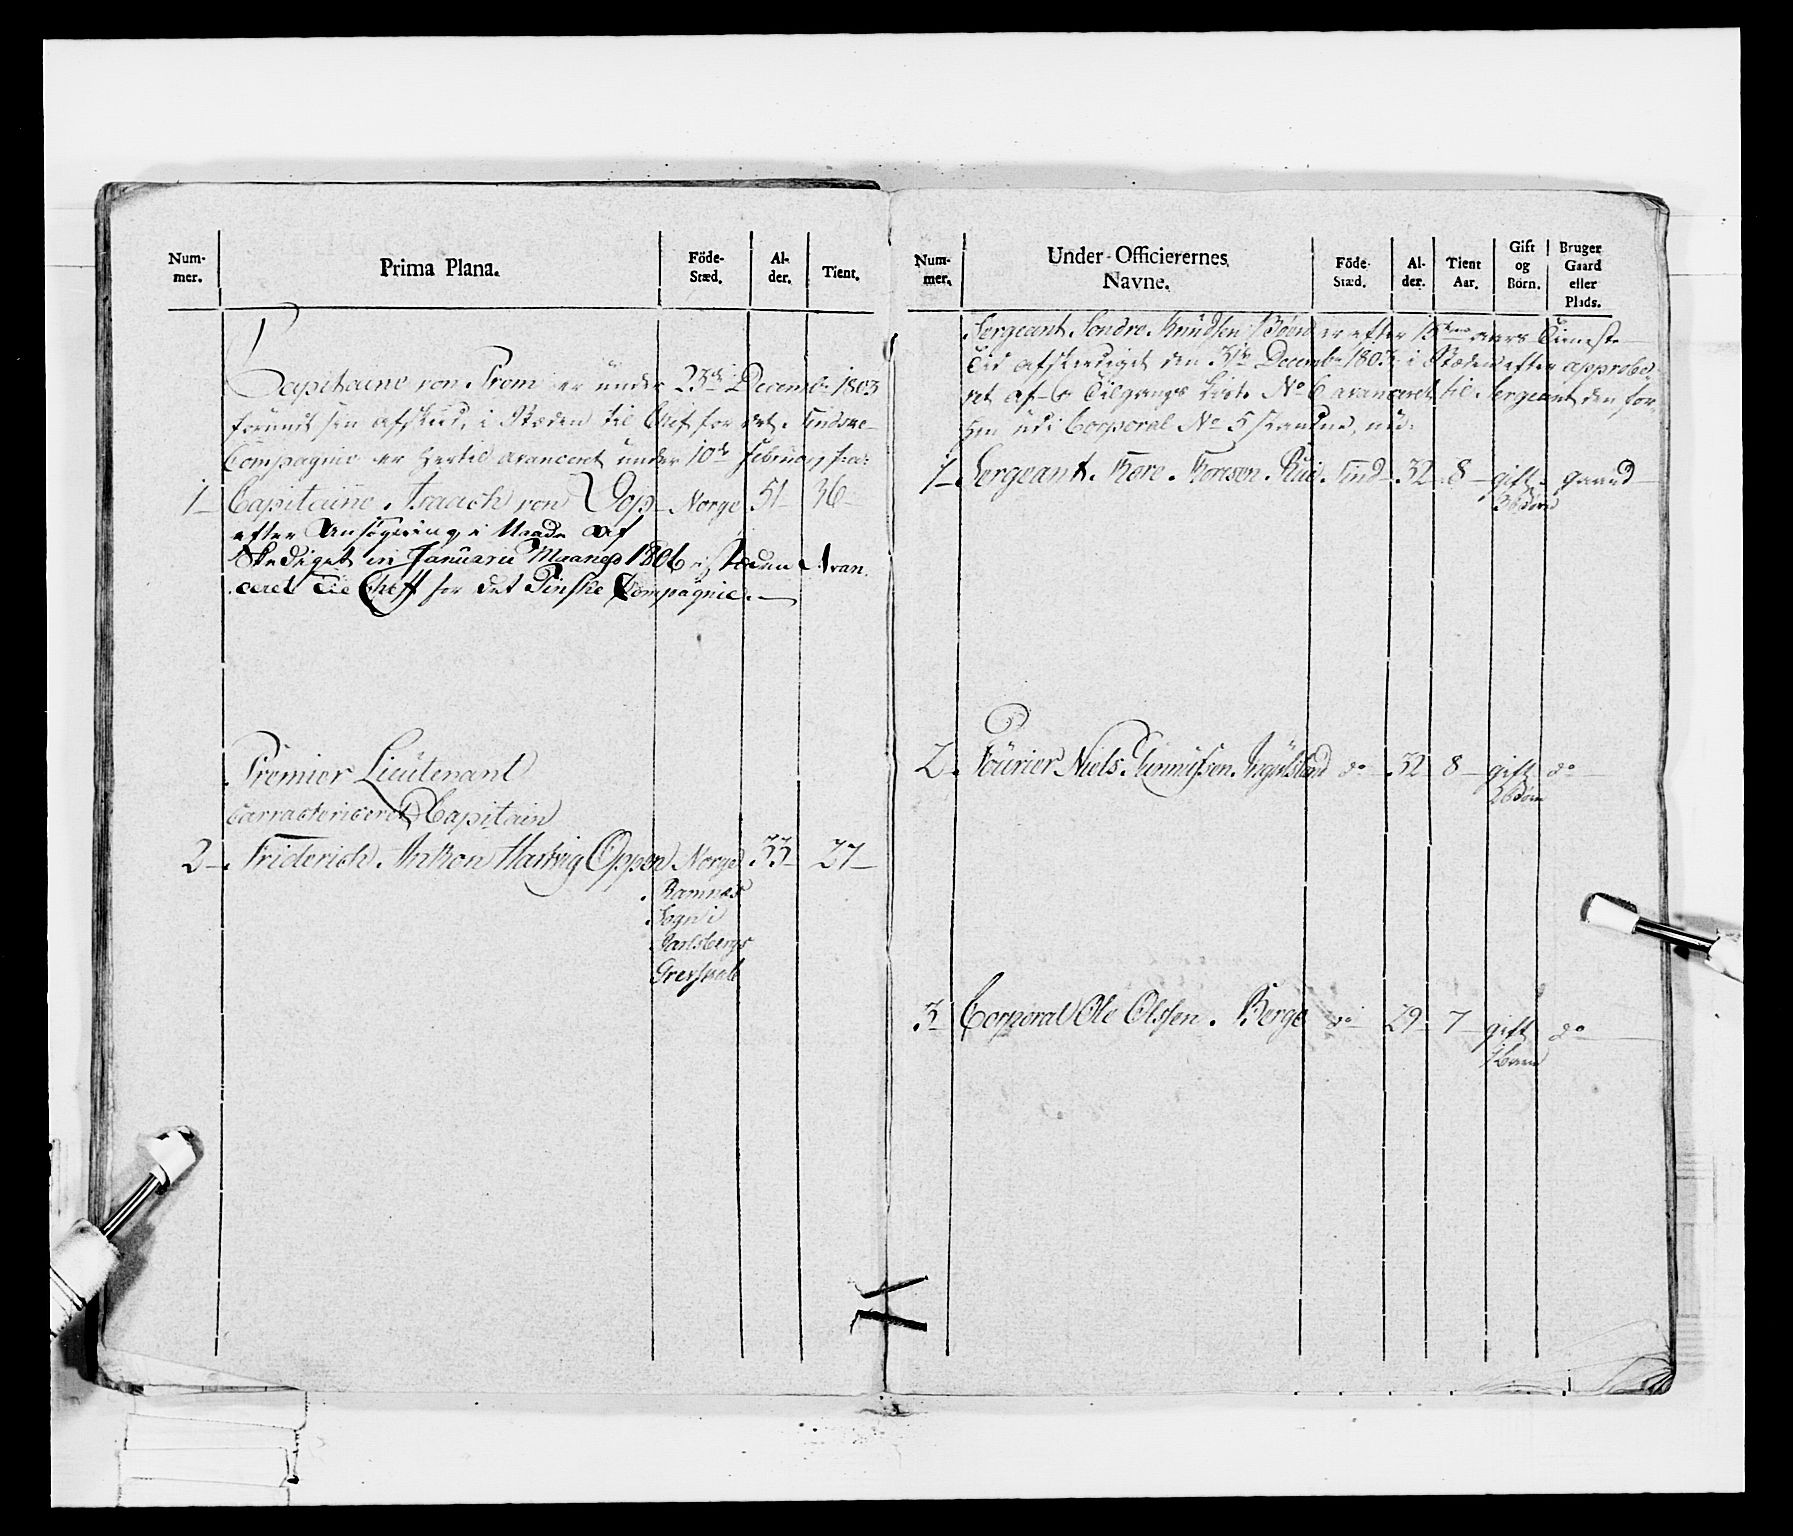 Num-
mer.
Prima Plana.
Föde-
Stæd.
Al-
der.
Tient.
Capitaine von Prom er under 23de Decembr 1803
forundt sin afskeed, i Stæden til Chef for det Tindske
Compagnie er hertil avanceret under 10de Februarj
1 Capitaine Isaach von Norge 51 36
efter Ansøgning i Naade Af
Skediget in Januarii Maaned 1806 i stæden Avan
ceret til Cheff for det Tinske Compagnie.
Premier Lieutenant
Carracteriseret Capitain
2 Friderich Anthon Hartvig Oppen Norge 33 27
Ramnæs
Sogn i
Jarlsbergs
Grevskab
Num-
mer.
Under-Officierernes
Navne.
Föde-
Stæd.
Al-
der.
Tient
Aar.
Gift
og
Börn.
Bruger
Gaard
eller
Plads.
Sergeant Sondre Knudsen Bøen er efter aars Tieneste
Tid afskediget den 31te Decembr 1803 i Stæden efter approbe
ret af Tilgangs Liste No 6 avanceret til Sergeant den for
hen Corporal No 5 nu
1 Sergeant Tore Toresen Rue Tind 32 8 gift gaard
3 børn
2 Fourier Niels Gunnufsen Ingulsland do 32 8 gift do
2 børn
3 Corporal Ole Olssen Berge do 29 7 gift do
1 barn